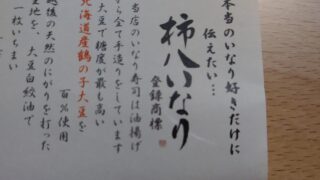 本当のいなり好きだけに
伝えたい…
柿八いなり
登録商標
当店のいなり寿司は油揚げ
から全て手造りをしています
大豆で糖度が最も高い
北海道産鶴の子大豆を
百％使用
越後の天然のにがりを打った
生地を、大豆白絞油で
一枚いちまい